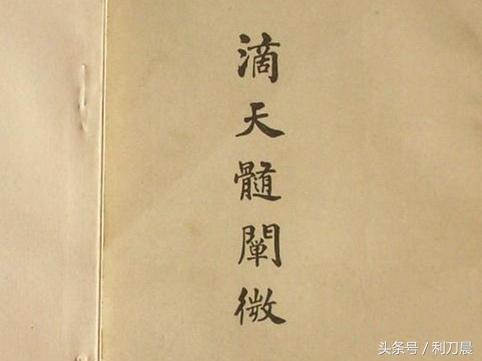 滴天髓闡微
头条号 / 利刀晨